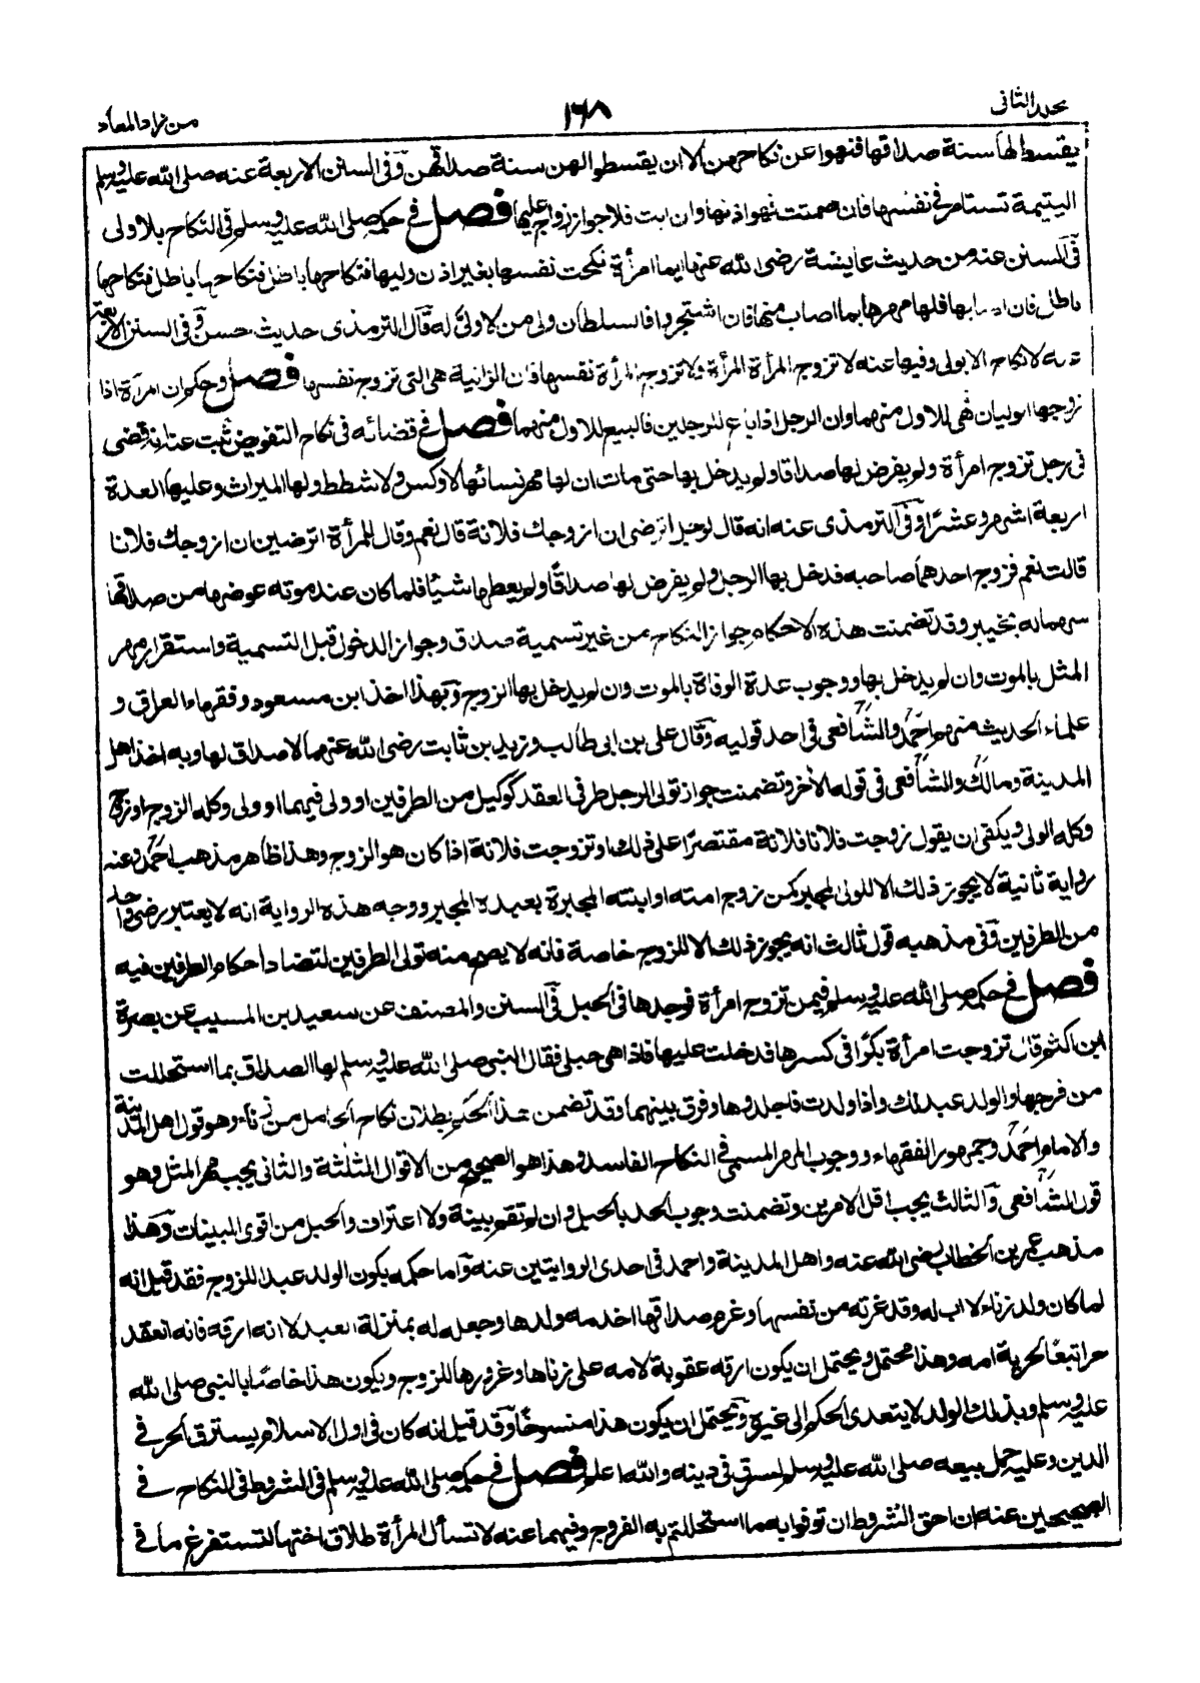 مجلد الثانى
١٦٨
من زاد المعاد
يقسط لها سنة صداقها فنهوا عن نكاحهن الا ان يقسطوا لهن سنة صداقهن وفى السنن الاربعة عنه صلى الله عليه وسلم
اليتيمة تستامر فى نفسها فان صمتت فهو اذنها وان ابت فلا جواز عليها فصل فى حكمه صلى الله عليه وسلم فى النكاح بلا ولى
فى السنن عنه من حديث عايشة رضى الله عنها ايما امرأة نكحت نفسها بغير اذن وليها فنكاحها باطل فنكاحها باطل فنكاحها
باطل فان اصابها فلها مهرها بما اصاب منها فان اشتجروا فالسلطان ولى من لا ولى له قال الترمذى حديث حسن وفى السنن الاربعة
عنه لا نكاح الا بولى وفيها عنه لا تزوج المرأة المرأة ولا تزوج المرأة نفسها فان الزانية هى التى تزوج نفسها فصل وحكم ان امرأة اذا
زوجها الوليان فهى للاول منهما وان الرجل اذا باع للرجلين فالبيع للاول منهما فصل فى قضائه فى نكاح التفويض ثبت عنه انه قضى
فى رجل تزوج امرأة ولم يفرض لها صداقا ولم يدخل بها حتى مات ان لها مهر نسائها لا وكس ولا شطط ولها الميراث وعليها العدة
اربعة اشهر وعشرا وفى الترمذى عنه انه قال لرجل اترضى ان ازوجك فلانة قال نعم وقال للمرأة اترضين ان ازوجك فلانا
قالت نعم فزوج احدهما صاحبه فدخل بها الرجل ولم يفرض لها صداقا ولم يعطها شيئا فلما كان عند موته عوضها من صداقها
سهما له بخيبر وقد تضمنت هذه الاحكام جواز النكاح من غير تسمية صداق وجواز الدخول قبل التسمية واستقرار مهر
المثل بالموت وان لم يدخل بها ووجوب عدة الوفاة بالموت وان لم يدخل بها الزوج وبهذا اخذ ابن مسعود وفقهاء العراق و
علماء الحديث منهم احمد والشافعى فى احد قوليه وقال على بن ابى طالب وزيد بن ثابت رضى الله عنهما لا صداق لها وبه اخذ اهل
المدينة ومالك والشافعى فى قوله الأخر وتضمنت جواز تولى الرجل طرفى العقد كوكيل من الطرفين او ولى فيهما او ولى وكله الزوج او زوج
وكله الولى ويكفى ان يقول زوجت فلانا فلانة مقتصرا على ذلك او تزوجت فلانة اذا كان هو الزوج وهذا ظاهر مذهب احمد وعنه
رواية ثانية لا يجوز ذلك الا للولى المجبر كمن زوج امته او ابنته المجبرة بعبده المجبر ووجه هذه الرواية انه لا يعتبر رضى واحد
من الطرفين وفى مذهبه قول ثالث انه يجوز ذلك الا للزوج خاصة فانه لا يصح منه تولى الطرفين لتضاد احكام الطرفين فيه
فصل فى حكمه صلى الله عليه وسلم فيمن تزوج امرأة فوجدها فى الحبل فى السنن والمصنف عن سعيد بن المسيب عن بصرة
ابن اكثم قال تزوجت امرأة بكرا فى كسرها فدخلت عليها فاذا هى حبلى فقال النبى صلى الله عليه وسلم لها الصداق بما استحللت
من فرجها والولد عبد لك واذا ولدت فاجلدوها وفرق بينهما وقد تضمن هذا الحكم بطلان نكاح الحامل من زناء وهو قول اهل المدينة
والامام احمد وجمهور الفقهاء ووجوب المهر المسمى فى النكاح الفاسد وهذا هو الصحيح من الاقوال الثلثة والثانى يجب مهر المثل وهو
قول الشافعى والثالث يجب اقل الامرين وتضمنت وجوب الحد بالحبل وان لم تقم بينة ولا اعتراف والحبل من اقوى البينات وهذا
مذهب عمر بن الخطاب رضى الله عنه واهل المدينة واحمد فى احدى الروايتين عنه واما حكمه بكون الولد عبدا للزوج فقد قيل انه
لما كان ولد زناء لا اب له وقد غرته من نفسها وغرم صداقها اخدمه ولدها وجعله له بمنزلة العبد لا انه ارقه فانه انعقد
حرا تبعا لحرية امه وهذا محتمل ويحتمل ان يكون ارقه عقوبة لامه على زناها وغرورها للزوج ويكون هذا خاصا بالنبى صلى الله
عليه وسلم وبذلك الولد لا يتعدى الحكم الى غيره ويحتمل ان يكون هذا منسوخا وقد قيل انه كان فى اول الاسلام يسترق الحر فى
الدين وعليه حمل بيعه صلى الله عليه وسلم لسرق فى دينه والله اعلم فصل فى حكمه صلى الله عليه وسلم فى الشروط فى النكاح فى
الصحيحين عنه ان احق الشروط ان توفوا به ما استحللتم به الفروج وفيهما عنه لا تسأل المرأة طلاق اختها لتستفرغ ما فى